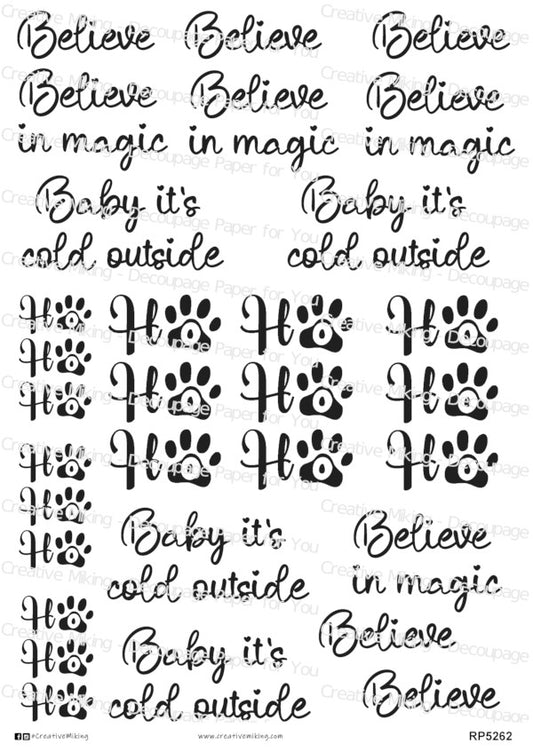 Believe Believe Believe
Believe Believe Believe
in magic in magic in magic
Baby it's Baby it's
cold outside cold outside
Ho Ho Ho Ho
Ho
Ho Ho Ho
Ho
Ho Ho Ho
Ho
Ho
Ho
Baby it's Believe
cold outside in magic
Ho
Believe
Ho Baby it's
Ho cold outside Believe
#CreativeMiking www.creativemiking.com RP5262
Creative Miking - Decoupage Paper for You